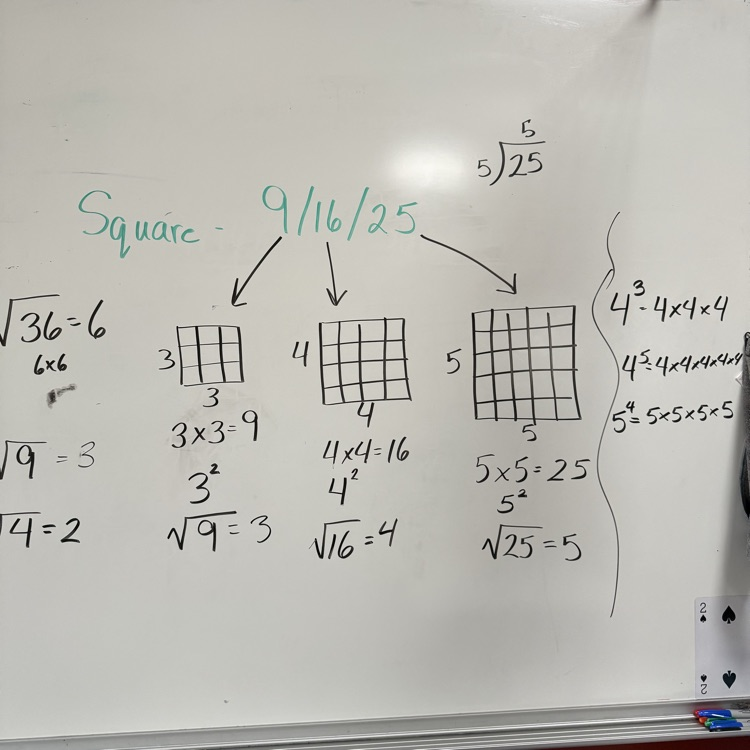 5
5)25
Square - 9/16/25
√36=6
6x6
√9=3
√4=2
3
3
3x3=9
3²
√9=3
4
4
4x4=16
4²
√16=4
5
5
5x5=25
5²
√25=5
4³-4x4x4
4⁵=4x4x4x4x4
5⁴=5x5x5x5
2
2